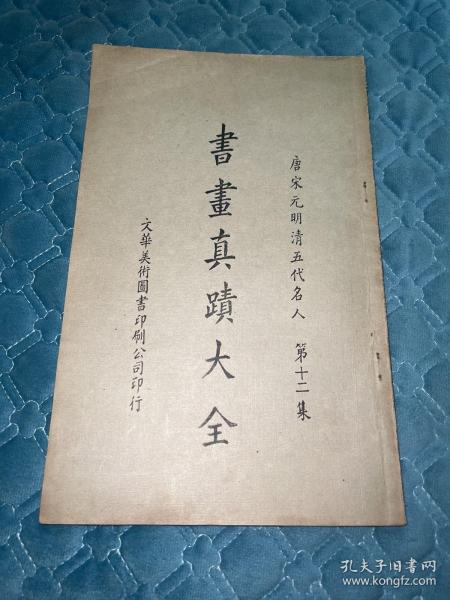 唐宋元明清五代名人 第十二集
書畫真蹟大全
文華美術圖書印刷公司印行
孔夫子旧书网
www.kongfz.com